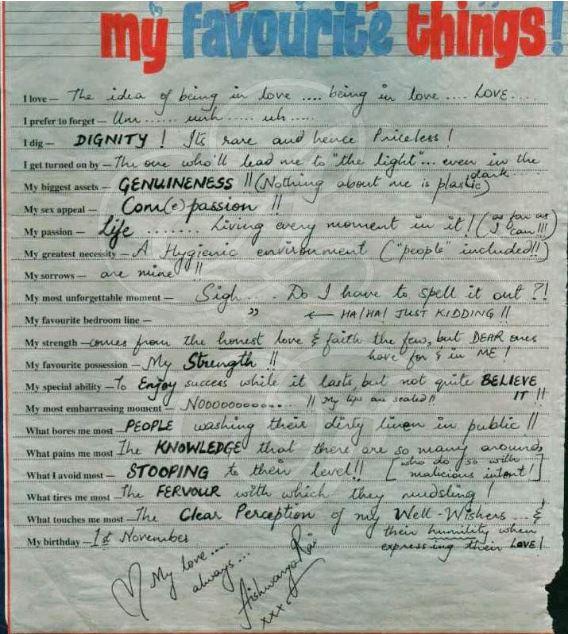 my favourite things!
I love – The idea of being in love .... being in love .... LOVE ....
I prefer to forget – Um ...... umh ...... uh ....
I dig – DIGNITY! Its rare and hence Priceless!
I get turned on by – The one who'll lead me to "the light"... even in the dark
My biggest assets – GENUINENESS !! (Nothing about me is plastic)
My sex appeal – Com(e)passion !!
My passion – Life ........ Living every moment in it! (as far as I can!!!)
My greatest necessity – A Hygienic environment ("people" included!!)
My sorrows – are mine !!
My most unforgettable moment – Sigh ... Do I have to spell it out ?!
My favourite bedroom line – " ← HA! HA! JUST KIDDING !!
My strength – comes from the honest love & faith the few, but DEAR ones
have for & in ME!
My favourite possession – My Strength !!
My special ability – To Enjoy success while it lasts, but not quite BELIEVE
IT !!
My most embarrassing moment – NOooooooo.... !! My lips are sealed !!
What bores me most – PEOPLE washing their dirty linen in public !!
What pains me most – The KNOWLEDGE that there are so many around,
[who do so with
malicious intent!]
What I avoid most – STOOPING to their level !!
What tires me most – The FERVOUR with which they mudsling !
What touches me most – The Clear Perception of my Well-Wishers ... &
their humility when
expressing their LOVE!
My birthday – 1st November
My love ....
always ...
Aishwarya Rai
xxx